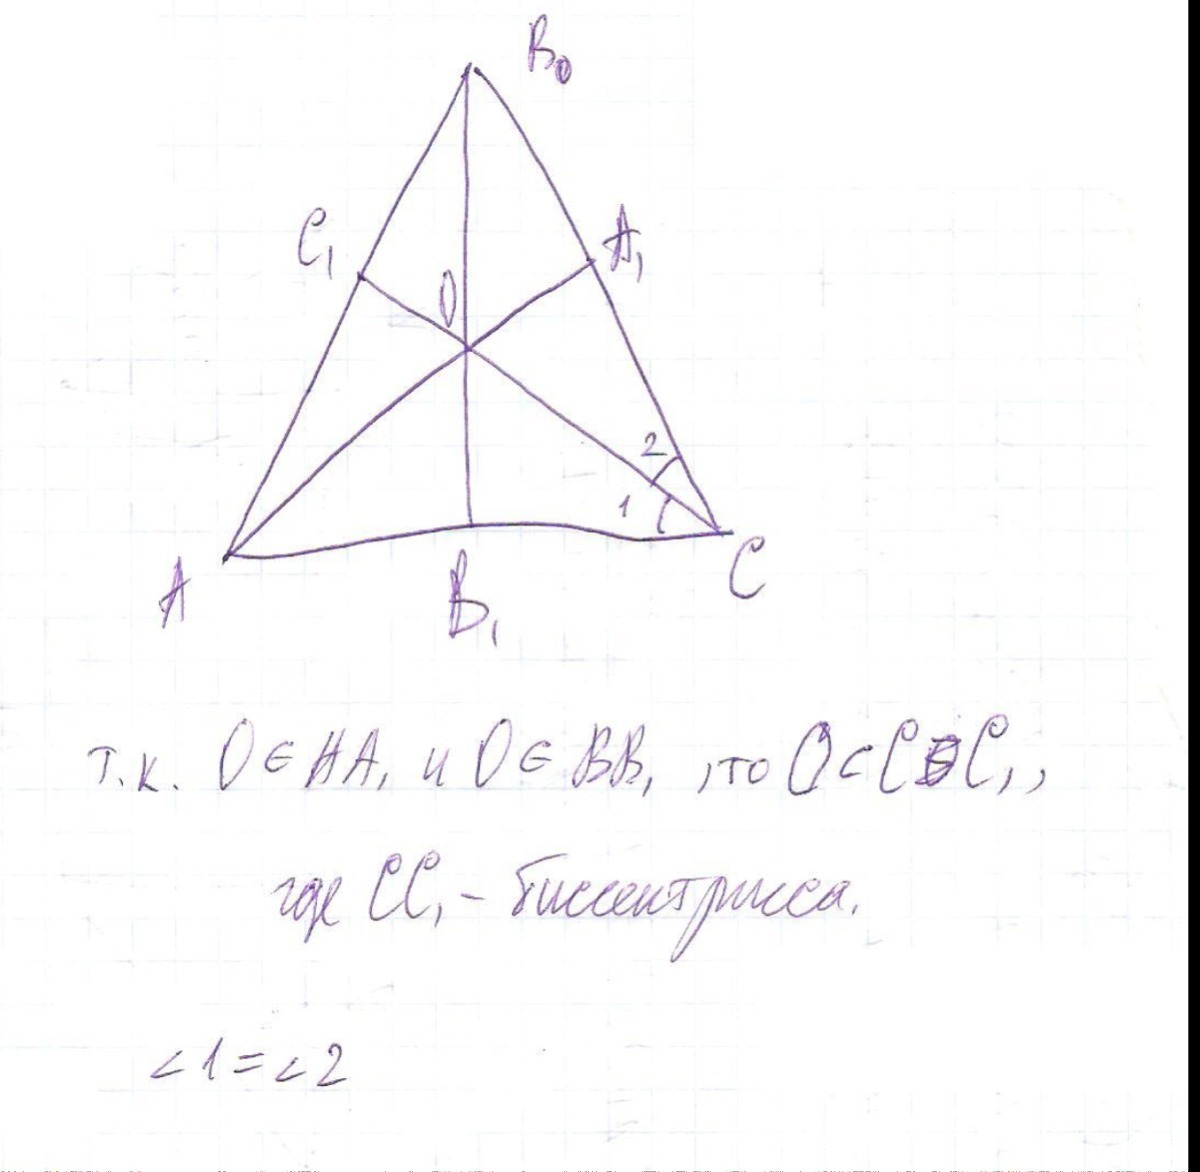 B₀
C₁
A₁
O
2
1
A
B₁
C
т.к. O ∈ AA₁ и O ∈ BB₁, то O ⊂ CC₁,
где CC₁ - биссектрисса.
∠1 = ∠2